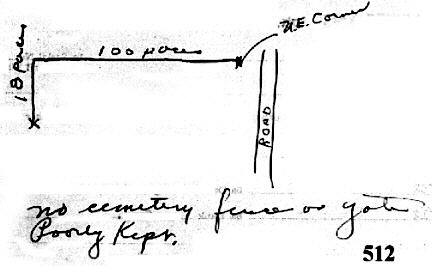 N.E. Corner
100 paces
18 Paces
ROAD
no cemetery fence or gate
Poorly Kept.
512